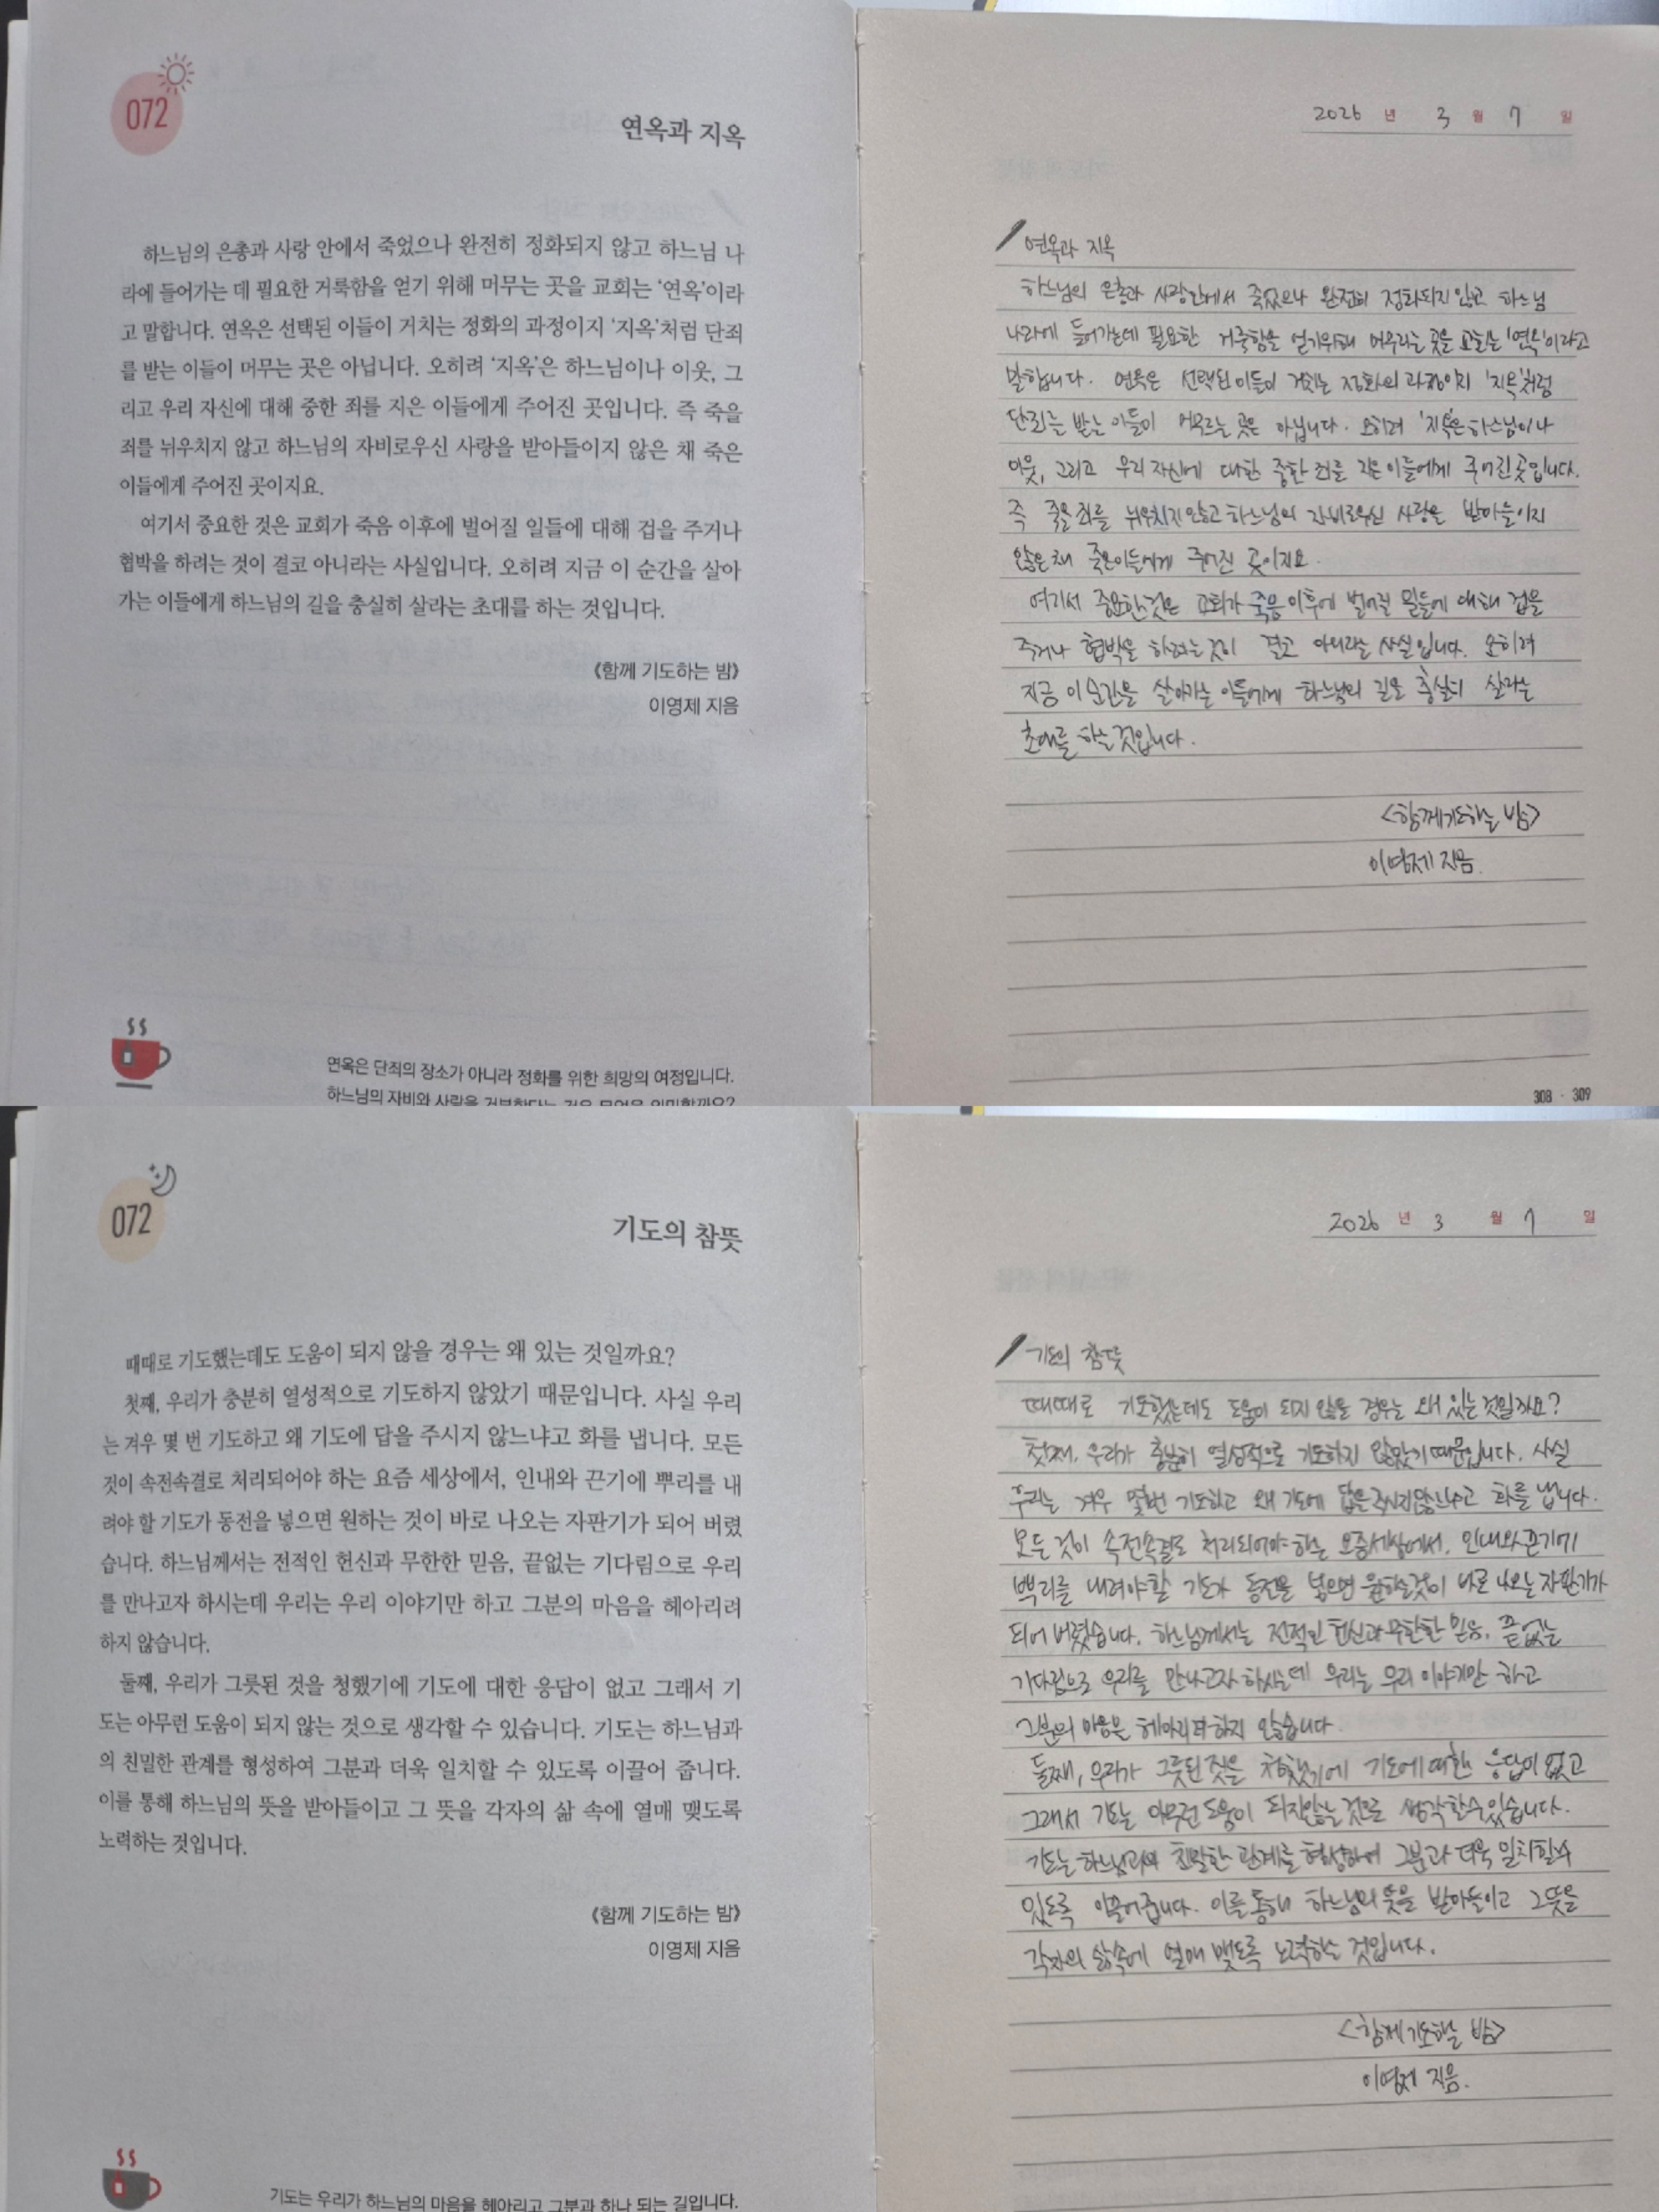 072
연옥과 지옥
하느님의 은총과 사랑 안에서 죽었으나 완전히 정화되지 않고 하느님 나
라에 들어가는 데 필요한 거룩함을 얻기 위해 머무는 곳을 교회는 ‘연옥’이라
고 말합니다. 연옥은 선택된 이들이 거치는 정화의 과정이지 ‘지옥’처럼 단죄
를 받는 이들이 머무는 곳은 아닙니다. 오히려 ‘지옥’은 하느님이나 이웃, 그
리고 우리 자신에 대해 중한 죄를 지은 이들에게 주어진 곳입니다. 즉 죽을
죄를 뉘우치지 않고 하느님의 자비로우신 사랑을 받아들이지 않은 채 죽은
이들에게 주어진 곳이지요.
여기서 중요한 것은 교회가 죽음 이후에 벌어질 일들에 대해 겁을 주거나
협박을 하려는 것이 결코 아니라는 사실입니다. 오히려 지금 이 순간을 살아
가는 이들에게 하느님의 길을 충실히 살라는 초대를 하는 것입니다.
《함께 기도하는 밤》
이영제 지음
연옥은 단죄의 장소가 아니라 정화를 위한 희망의 여정입니다.
하느님의 자비와 사랑을 거부한다는 것은 무엇을 의미할까요?
2026 년 3 월 7 일
연옥과 지옥
하느님의 은총과 사랑안에서 죽었으나 완전히 정화되지 않고 하느님
나라에 들어가는데 필요한 거룩함을 얻기위해 머무르는 곳을 교회는 '연옥'이라고
말합니다. 연옥은 선택된 이들이 거치는 정화의 과정이지 '지옥'처럼
단죄를 받는 이들이 머무르는 곳은 아닙니다. 오히려 '지옥'은 하느님이나
이웃, 그리고 우리 자신에 대한 중한 죄를 지은 이들에게 주어진 곳입니다.
즉 죽을 죄를 뉘우치지 않고 하느님의 자비로우신 사랑을 받아들이지
않은 채 죽은이들에게 주어진 곳이지요.
여기서 중요한것은 교회가 죽음 이후에 벌어질 일들에 대해 겁을
주거나 협박을 하려는 것이 결코 아니라는 사실입니다. 오히려
지금 이 순간을 살아가는 이들에게 하느님의 길을 충실히 살라는
초대를 하는 것입니다.
<함께기도하는 밤>
이영제 지음.
308 · 309
072
기도의 참뜻
때때로 기도했는데도 도움이 되지 않을 경우는 왜 있는 것일까요?
첫째, 우리가 충분히 열성적으로 기도하지 않았기 때문입니다. 사실 우리
는 겨우 몇 번 기도하고 왜 기도에 답을 주시지 않느냐고 화를 냅니다. 모든
것이 속전속결로 처리되어야 하는 요즘 세상에서, 인내와 끈기에 뿌리를 내
려야 할 기도가 동전을 넣으면 원하는 것이 바로 나오는 자판기가 되어 버렸
습니다. 하느님께서는 전적인 헌신과 무한한 믿음, 끝없는 기다림으로 우리
를 만나고자 하시는데 우리는 우리 이야기만 하고 그분의 마음을 헤아리려
하지 않습니다.
둘째, 우리가 그릇된 것을 청했기에 기도에 대한 응답이 없고 그래서 기
도는 아무런 도움이 되지 않는 것으로 생각할 수 있습니다. 기도는 하느님과
의 친밀한 관계를 형성하여 그분과 더욱 일치할 수 있도록 이끌어 줍니다.
이를 통해 하느님의 뜻을 받아들이고 그 뜻을 각자의 삶 속에 열매 맺도록
노력하는 것입니다.
《함께 기도하는 밤》
이영제 지음
기도는 우리가 하느님의 마음을 헤아리고 그분과 하나 되는 길입니다.
2026 년 3 월 7 일
기도의 참뜻
때때로 기도했는데도 도움이 되지 않을 경우는 왜 있는 것일까요?
첫째, 우리가 충분히 열성적으로 기도하지 않았기 때문입니다. 사실
우리는 겨우 몇번 기도하고 왜 기도에 답을 주시지않느냐고 화를 냅니다.
모든 것이 속전속결로 처리되어야 하는 요즘세상에서, 인내와 끈기에
뿌리를 내려야할 기도가 동전을 넣으면 원하는것이 바로 나오는 자판기가
되어 버렸습니다. 하느님께서는 전적인 헌신과 무한한 믿음, 끝없는
기다림으로 우리를 만나고자 하시는데 우리는 우리 이야기만 하고
그분의 마음은 헤아리려 하지 않습니다.
둘째, 우리가 그릇된 것을 청했기에 기도에 대한 응답이 없고
그래서 기도는 아무런 도움이 되지않는 것으로 생각할수있습니다.
기도는 하느님과의 친밀한 관계를 형성하여 그분과 더욱 일치할수
있도록 이끌어줍니다. 이를 통해 하느님의 뜻을 받아들이고 그 뜻을
각자의 삶속에 열매 맺도록 노력하는 것입니다.
<함께기도하는 밤>
이영제 지음.